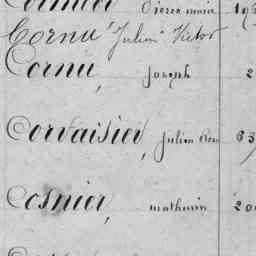 Cormier Pierre marie 192
Cornu Julien Victor
Cornu, Joseph 2
Corvaisier, Julien 63
Cosnier, mathurin 20